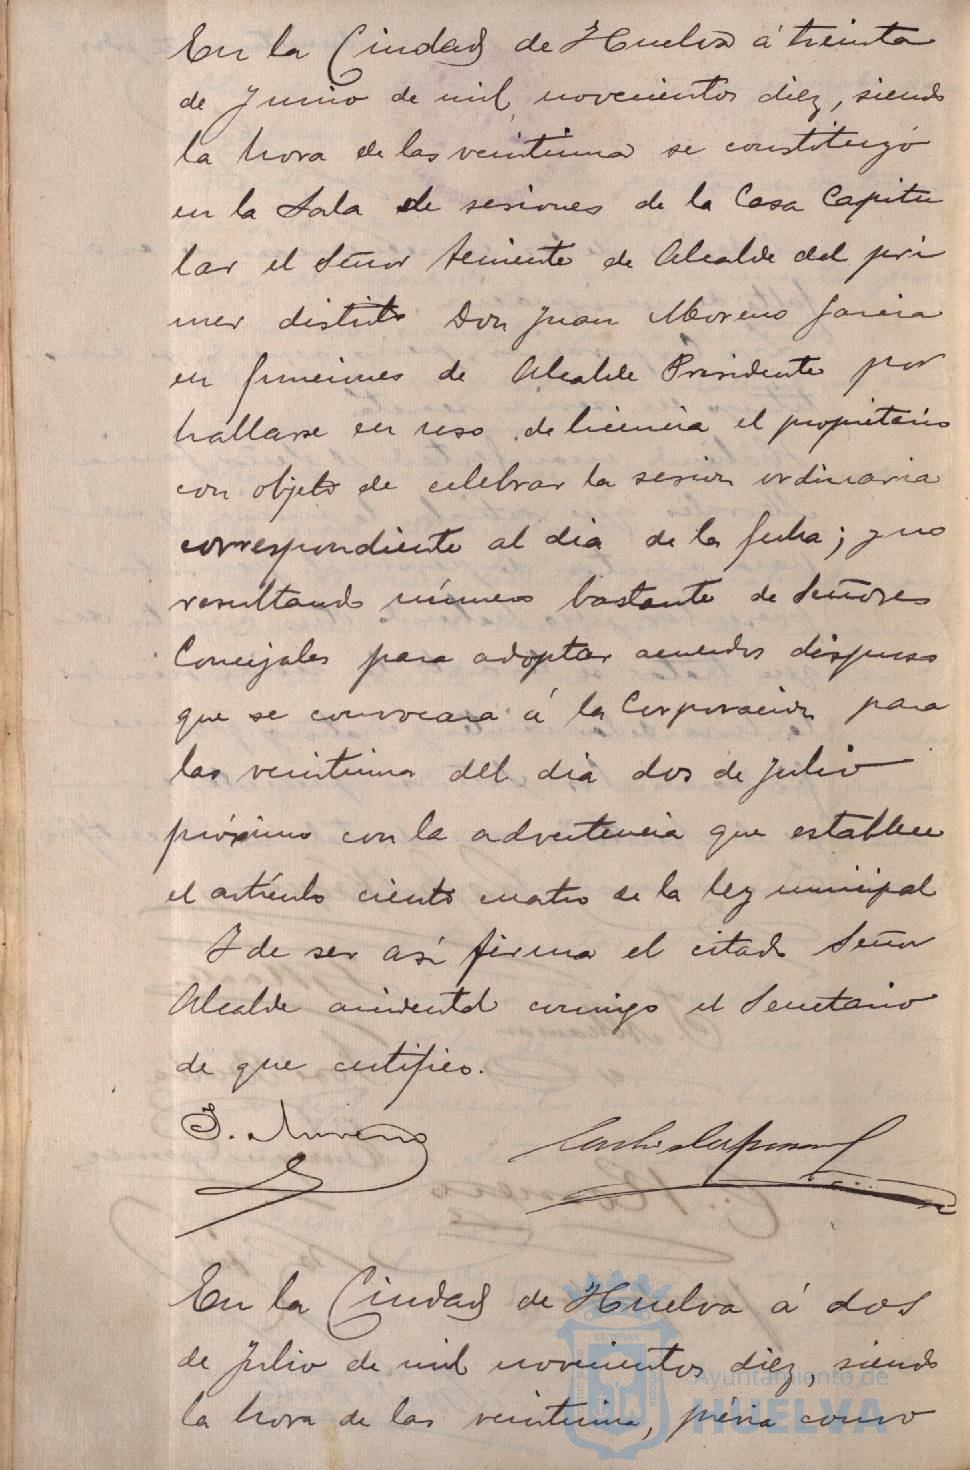 En la Ciudad de Huelva á treinta
de Junio de mil novecientos diez, siendo
la hora de las veintiuna se constituyó
en la Sala de sesiones de la Casa Capitu
lar el Señor Teniente de Alcalde del pri
mer distrito Don Juan Moreno García
en funciones de Alcalde Presidente por
hallarse en uso de licencia el propietario
con objeto de celebrar la sesion ordinaria
correspondiente al dia de la fecha; y no
resultando número bastante de Señores
Concejales para adoptar acuerdos dispuso
que se convocara á la Corporacion para
las veintiuna del dia dos de Julio
próximo con la advertencia que establece
el artículo ciento cuatro de la ley municipal
Y de ser así firma el citado Señor
Alcalde accidental conmigo el Secretario
de que certifico.
J. Moreno
En la Ciudad de Huelva á dos
de Julio de mil novecientos diez, siendo
la hora de las veintiuna, prévia convo
Ayuntamiento de
HUELVA